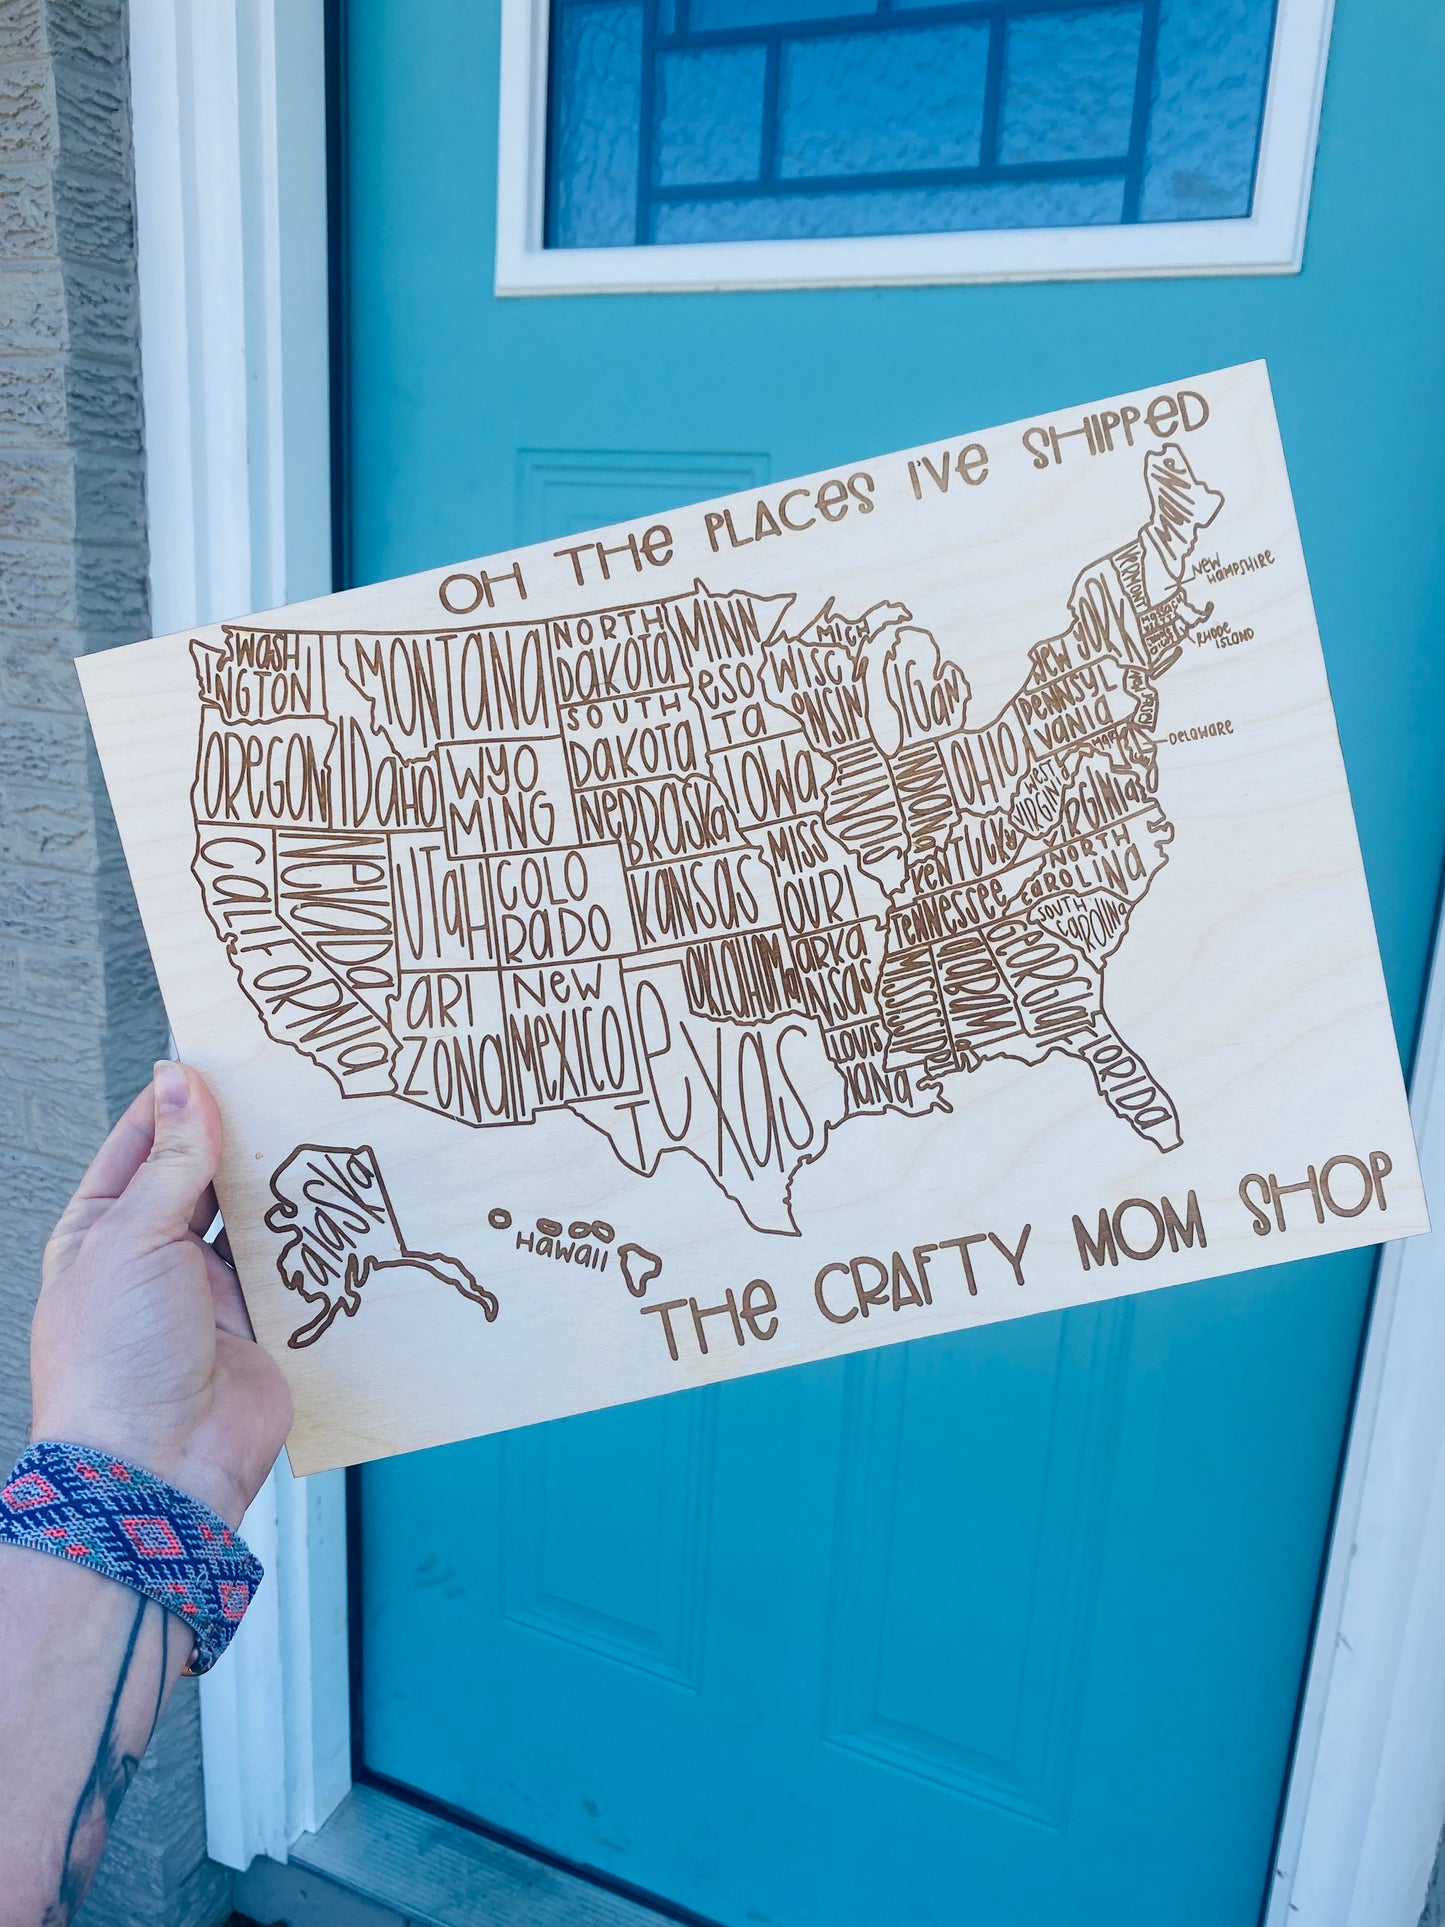 OH THE PLACES I'VE SHIPPED
MAINE
VERMONT
NEW
HAMPSHIRE
MASSACH
RHODE
ISLAND
NEW YORK
WASH
INGTON
MONTANA
NORTH
DAKOTA
MINN
ESO
TA
WISC
ONSIN
MICH
IGAN
PENNSYL
VANIA
NEW
DELAWARE
OREGON
IDAHO
WYO
MING
SOUTH
DAKOTA
IOWA
ILLINOIS
INDIANA
OHIO
WEST
VIRGINIA
VIRGINIA
NEBRASKA
CALIFORNIA
NEVADA
UTAH
COLO
RADO
KANSAS
MISS
OURI
KENTUCKY
TENNESSEE
NORTH
CAROLINA
SOUTH
CAROLINA
ARI
ZONA
NEW
MEXICO
OKLAHOMA
ARKA
NSAS
MISSISSIPPI
ALABAMA
GEORGIA
TEXAS
LOUIS
IANA
FLORIDA
ALASKA
HAWAII
THE CRAFTY MOM SHOP